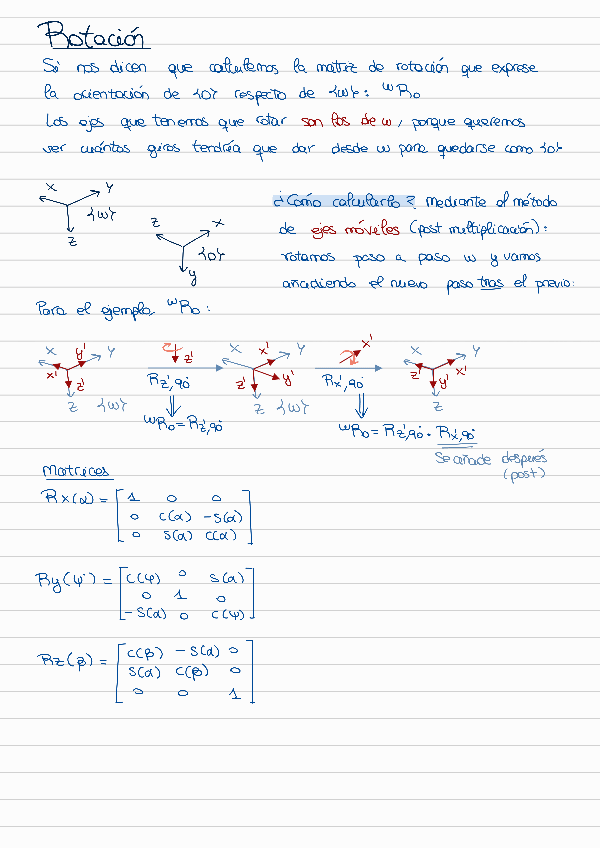 Rotación
Si nos dicen que calculemos la matriz de rotación que exprese
la orientación de {O} respecto de {W}: ᵂR₀
Los ejes que tenemos que rotar son los de W, porque queremos
ver cuántos giros tendría que dar desde W para quedarse como {O}
X Y {W} Z
Z X {O} Y
¿Cómo calcularlo? mediante el método
de ejes móviles (post multiplicación):
rotamos paso a paso W y vamos
añadiendo el nuevo paso tras el previo.
Para el ejemplo ᵂR₀:
X Y' Y X' Z' Z {W}
Z' Rz',90
X X' Y Z' Y' Z {W}
X' Rx',90
X Y Z' X' Y' Z
ᵂR₀ = Rz',90
ᵂR₀ = Rz',90 · Rx',90
Se añade después
(post)
Matrices
Rx(α) = [1 0 0
0 C(α) -S(α)
0 S(α) C(α)]
Ry(φ) = [C(φ) 0 S(α)
0 1 0
-S(α) 0 C(φ)]
Rz(β) = [C(β) -S(α) 0
S(α) C(β) 0
0 0 1]